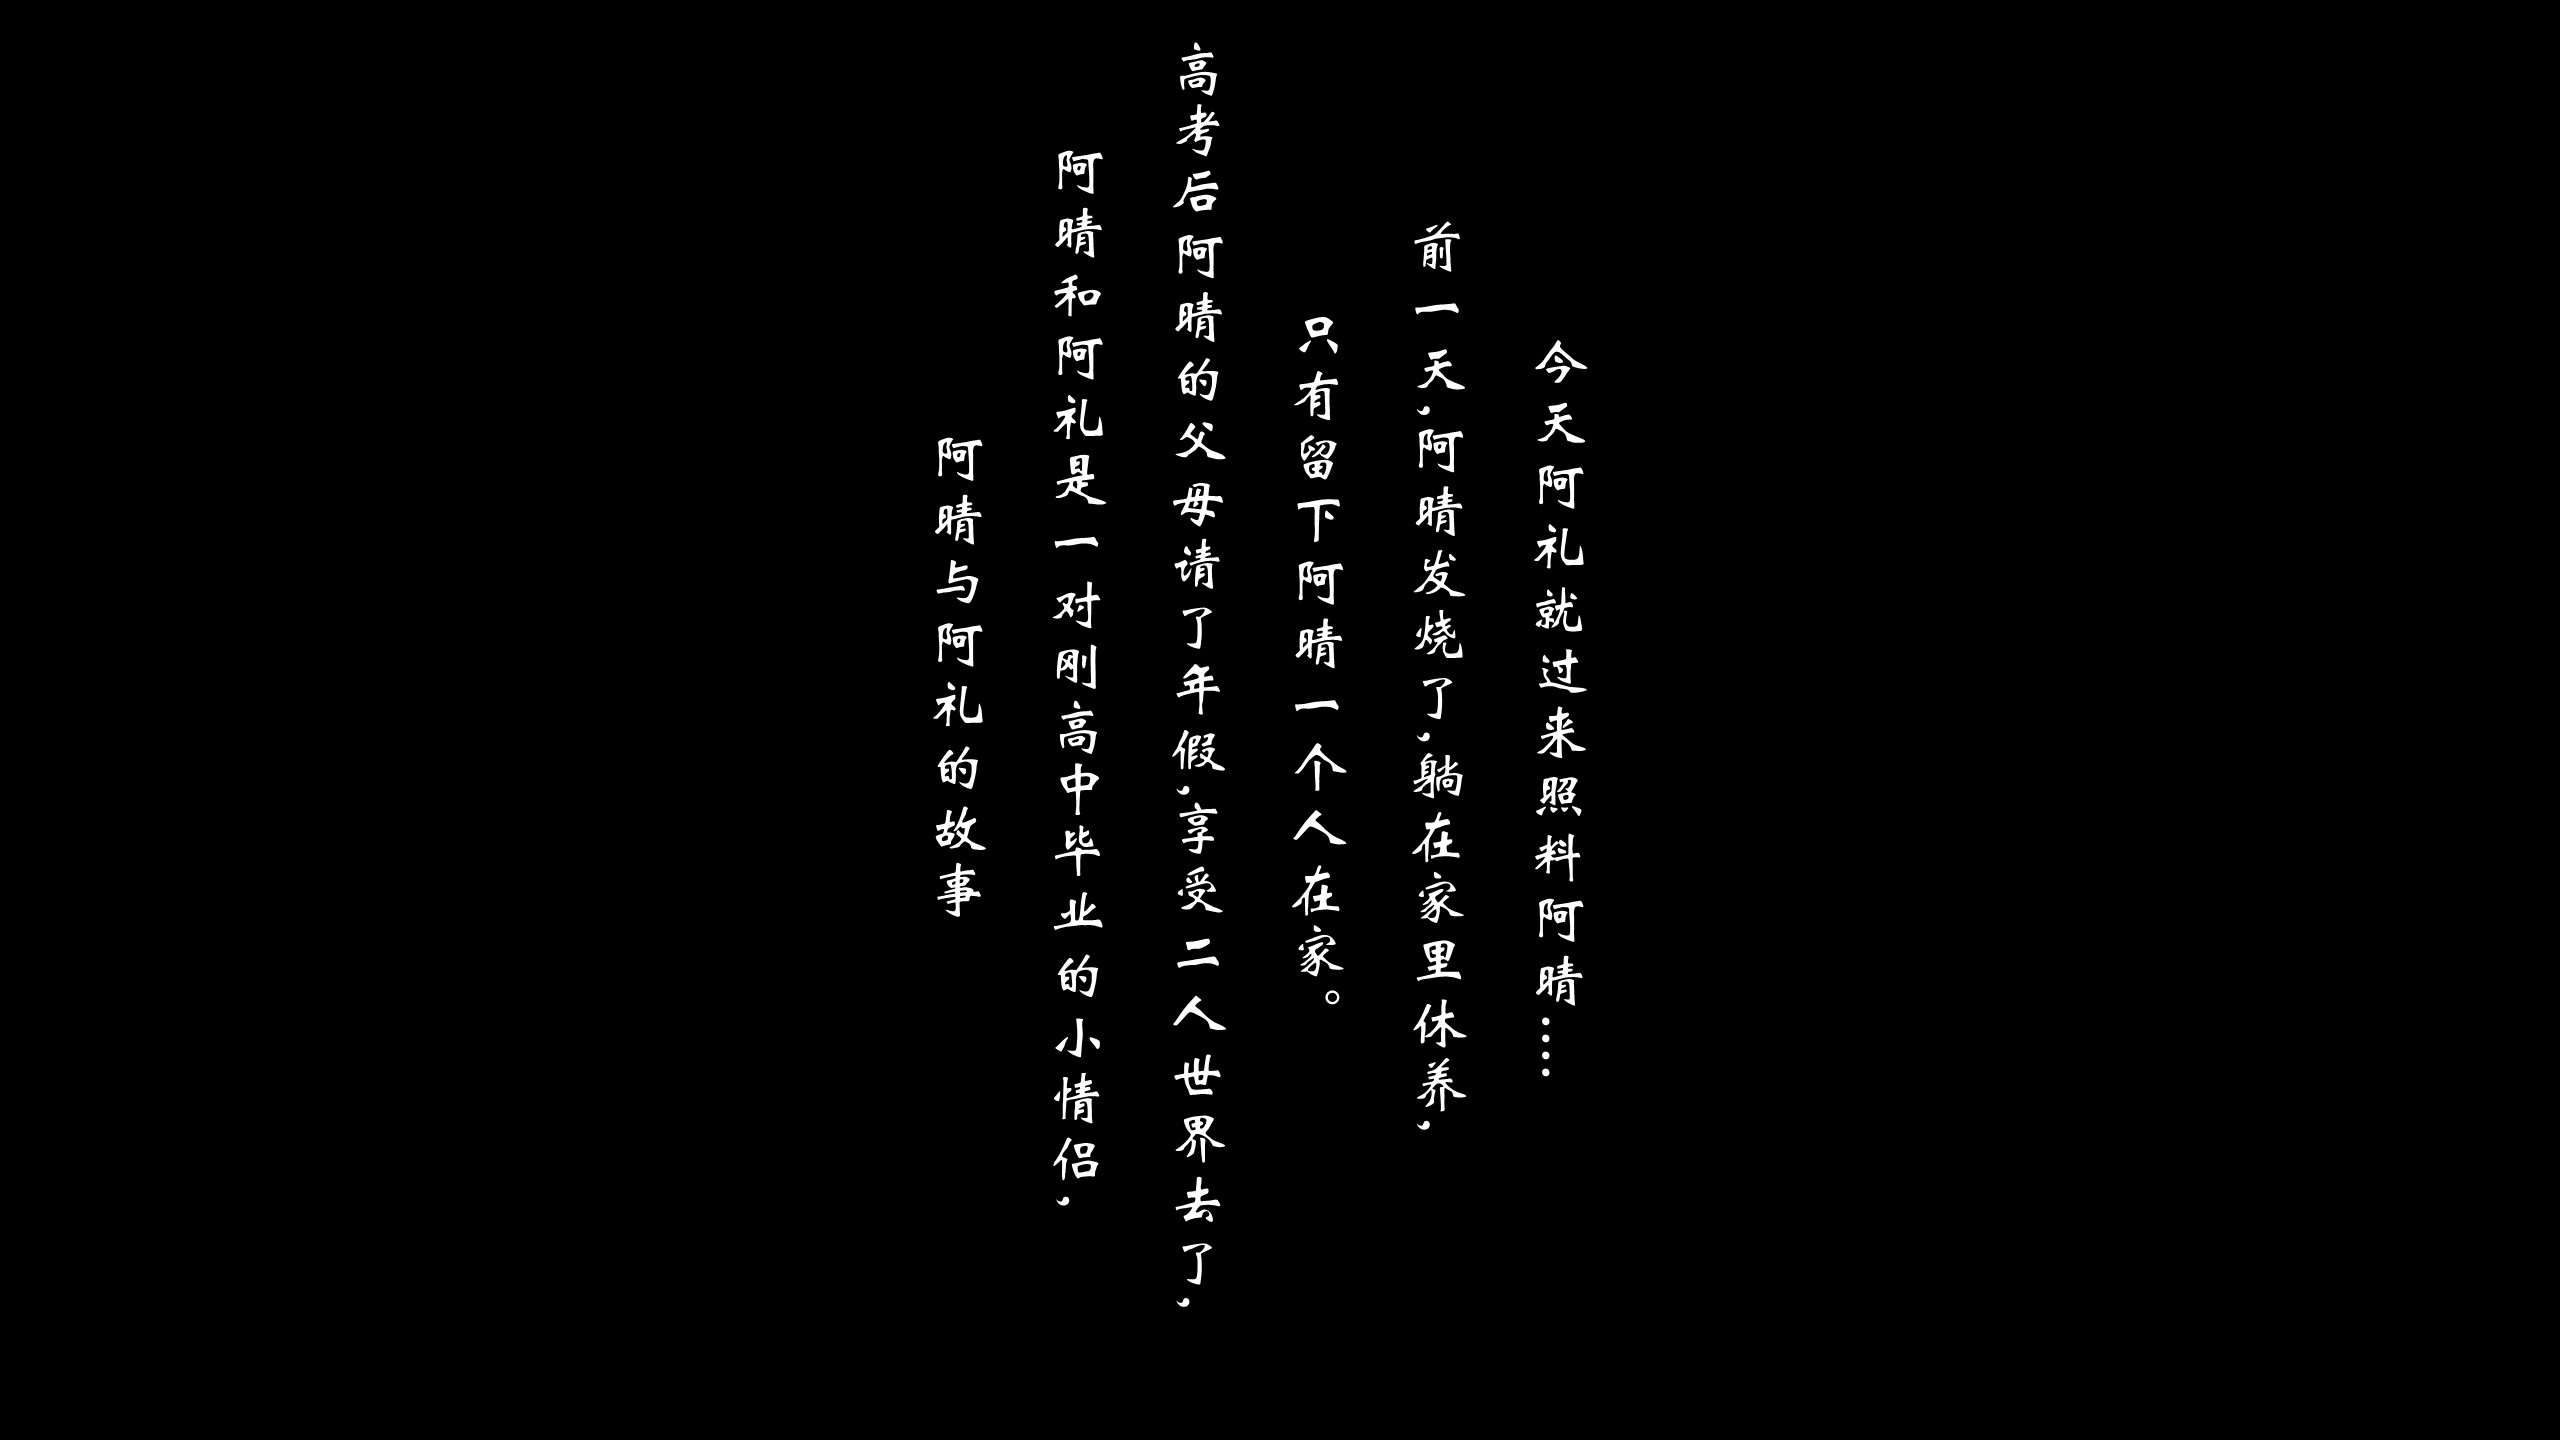 阿晴与阿礼的故事
阿晴和阿礼是一对刚高中毕业的小情侣,
高考后阿晴的父母请了年假,享受二人世界去了,
只有留下阿晴一个人在家。
前一天,阿晴发烧了,躺在家里休养,
今天阿礼就过来照料阿晴····